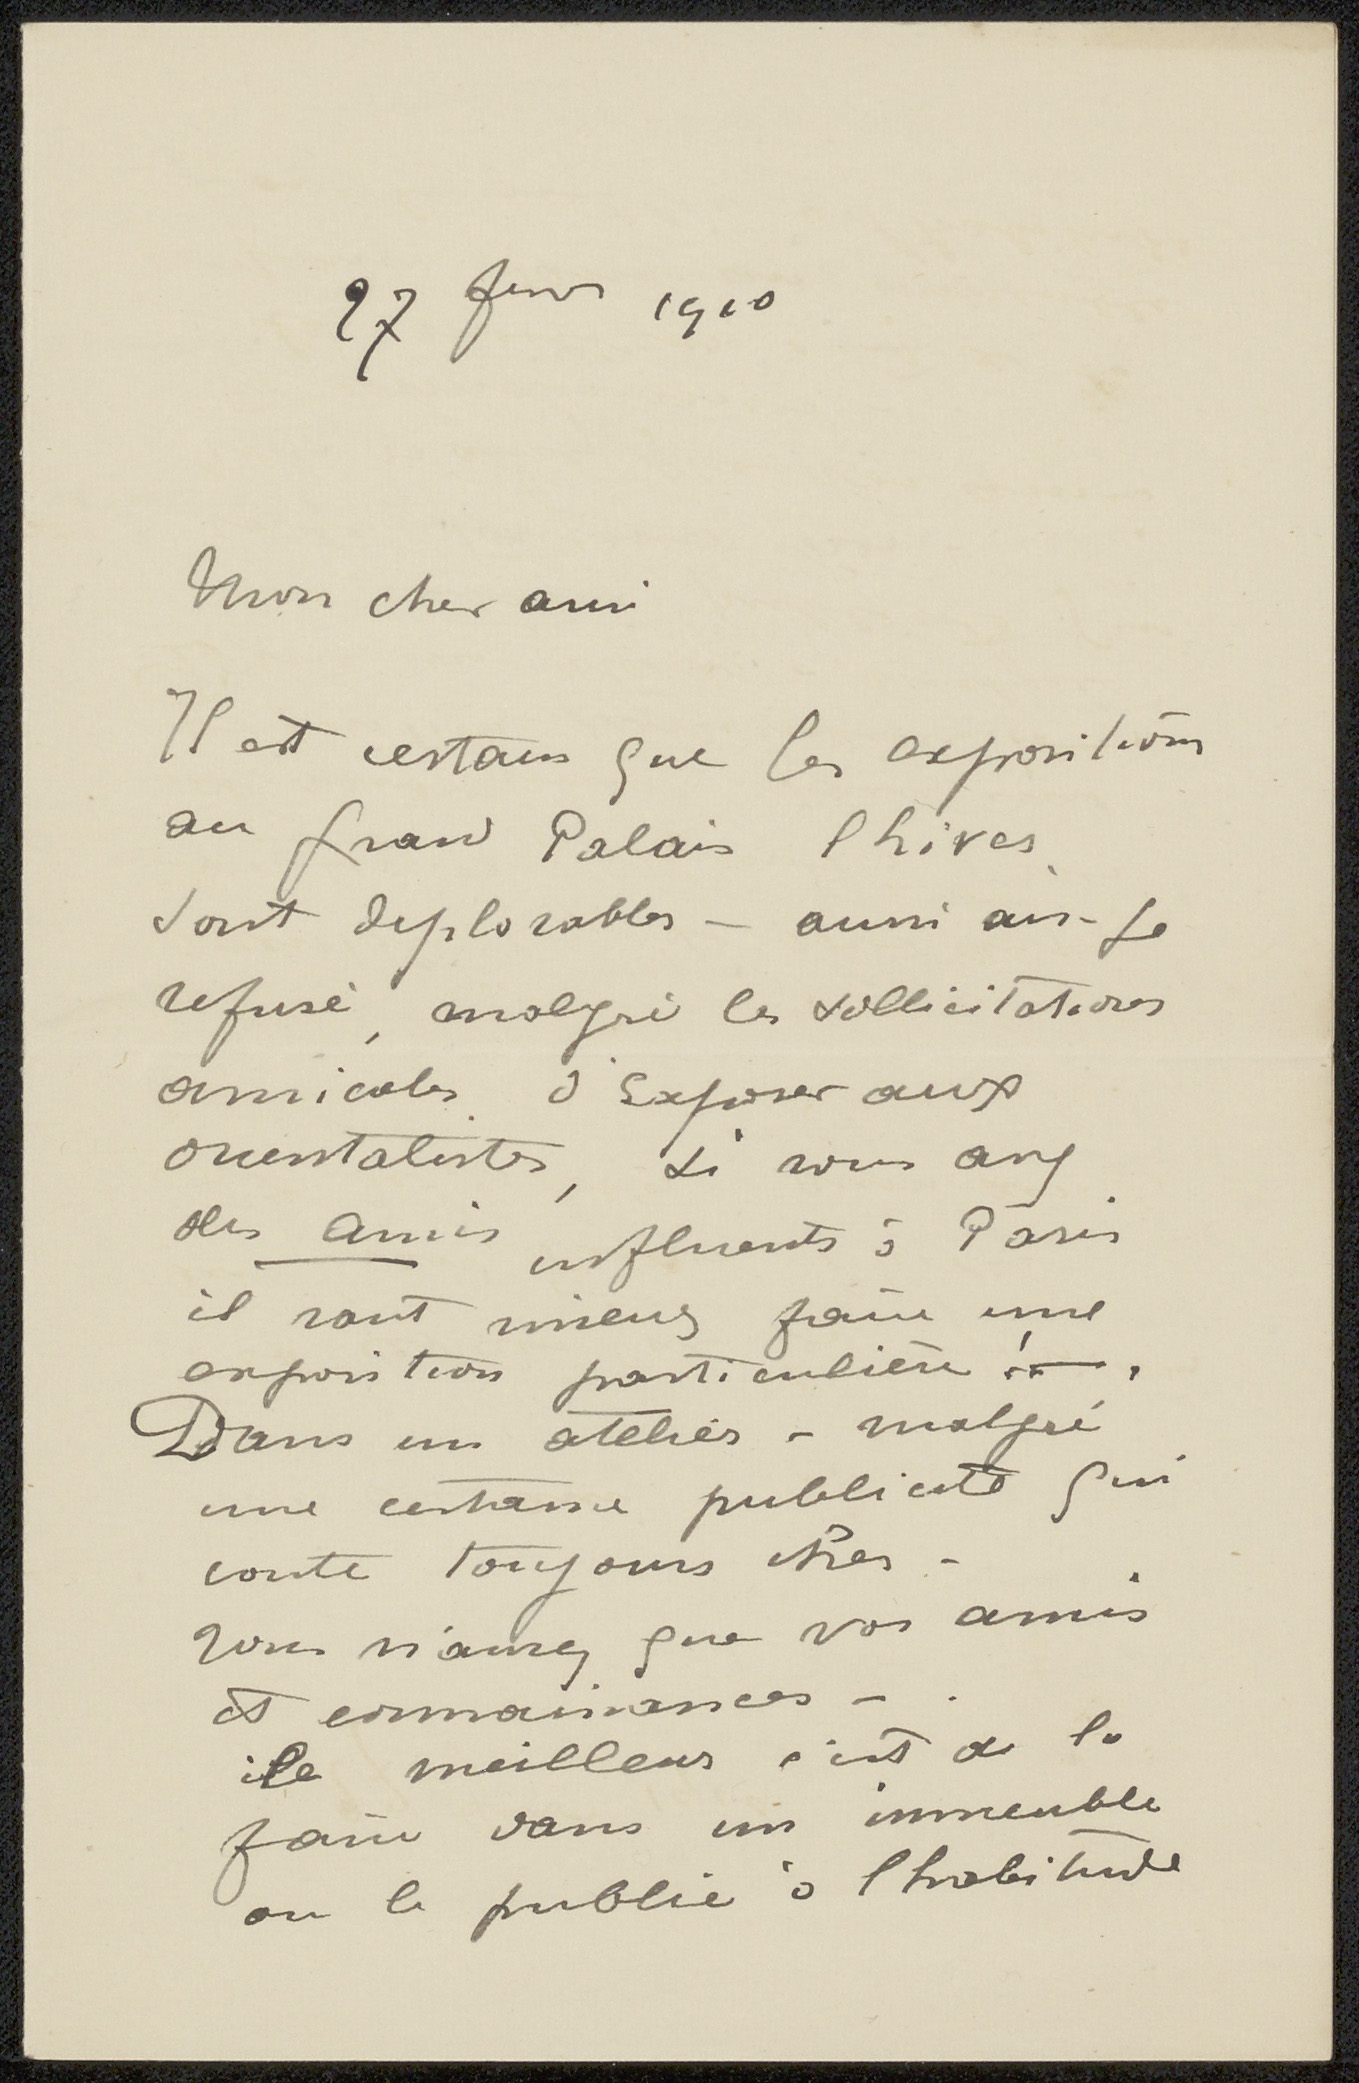 27 fevr 1910
Mon cher ami
Il est certain que les expositions
au Grand Palais l'hiver
sont deplorables – aussi ai-je
refusé, malgré les sollicitations
amicales d'exposer aux
orientalistes, si vous avez
des amis influents à Paris
il vaut mieux faire une
exposition particulière
Dans un atelier – malgré
une certaine publicité qui
coute toujours cher –
vous n'aurez que vos amis
et connaissances –
le meilleur c'est de la
faire dans un immeuble
ou le public à l'habitude